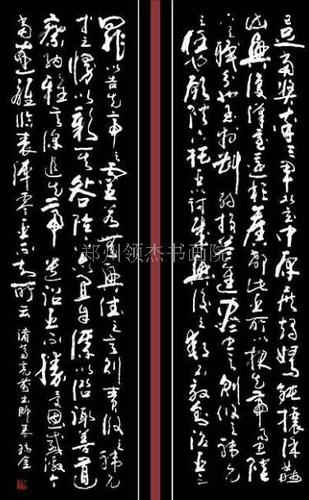 已足當獎率三軍北定中原庶竭駑鈍攘除姦
凶興復漢室還於舊都此臣所以報先帝而忠陛
下之職分也至於斟酌損益進盡忠言則攸之禕允
之任也願陛下託臣以討賊興復之效不效則治臣之
罪以告先帝之靈若無興德之言則責攸之禕允
等之慢以彰其咎陛下亦宜自謀以諮諏善道
察納雅言深追先帝遺詔臣不勝受恩感激今
當遠離臨表涕零不知所云 諸葛亮出師表
郑州领杰书画院